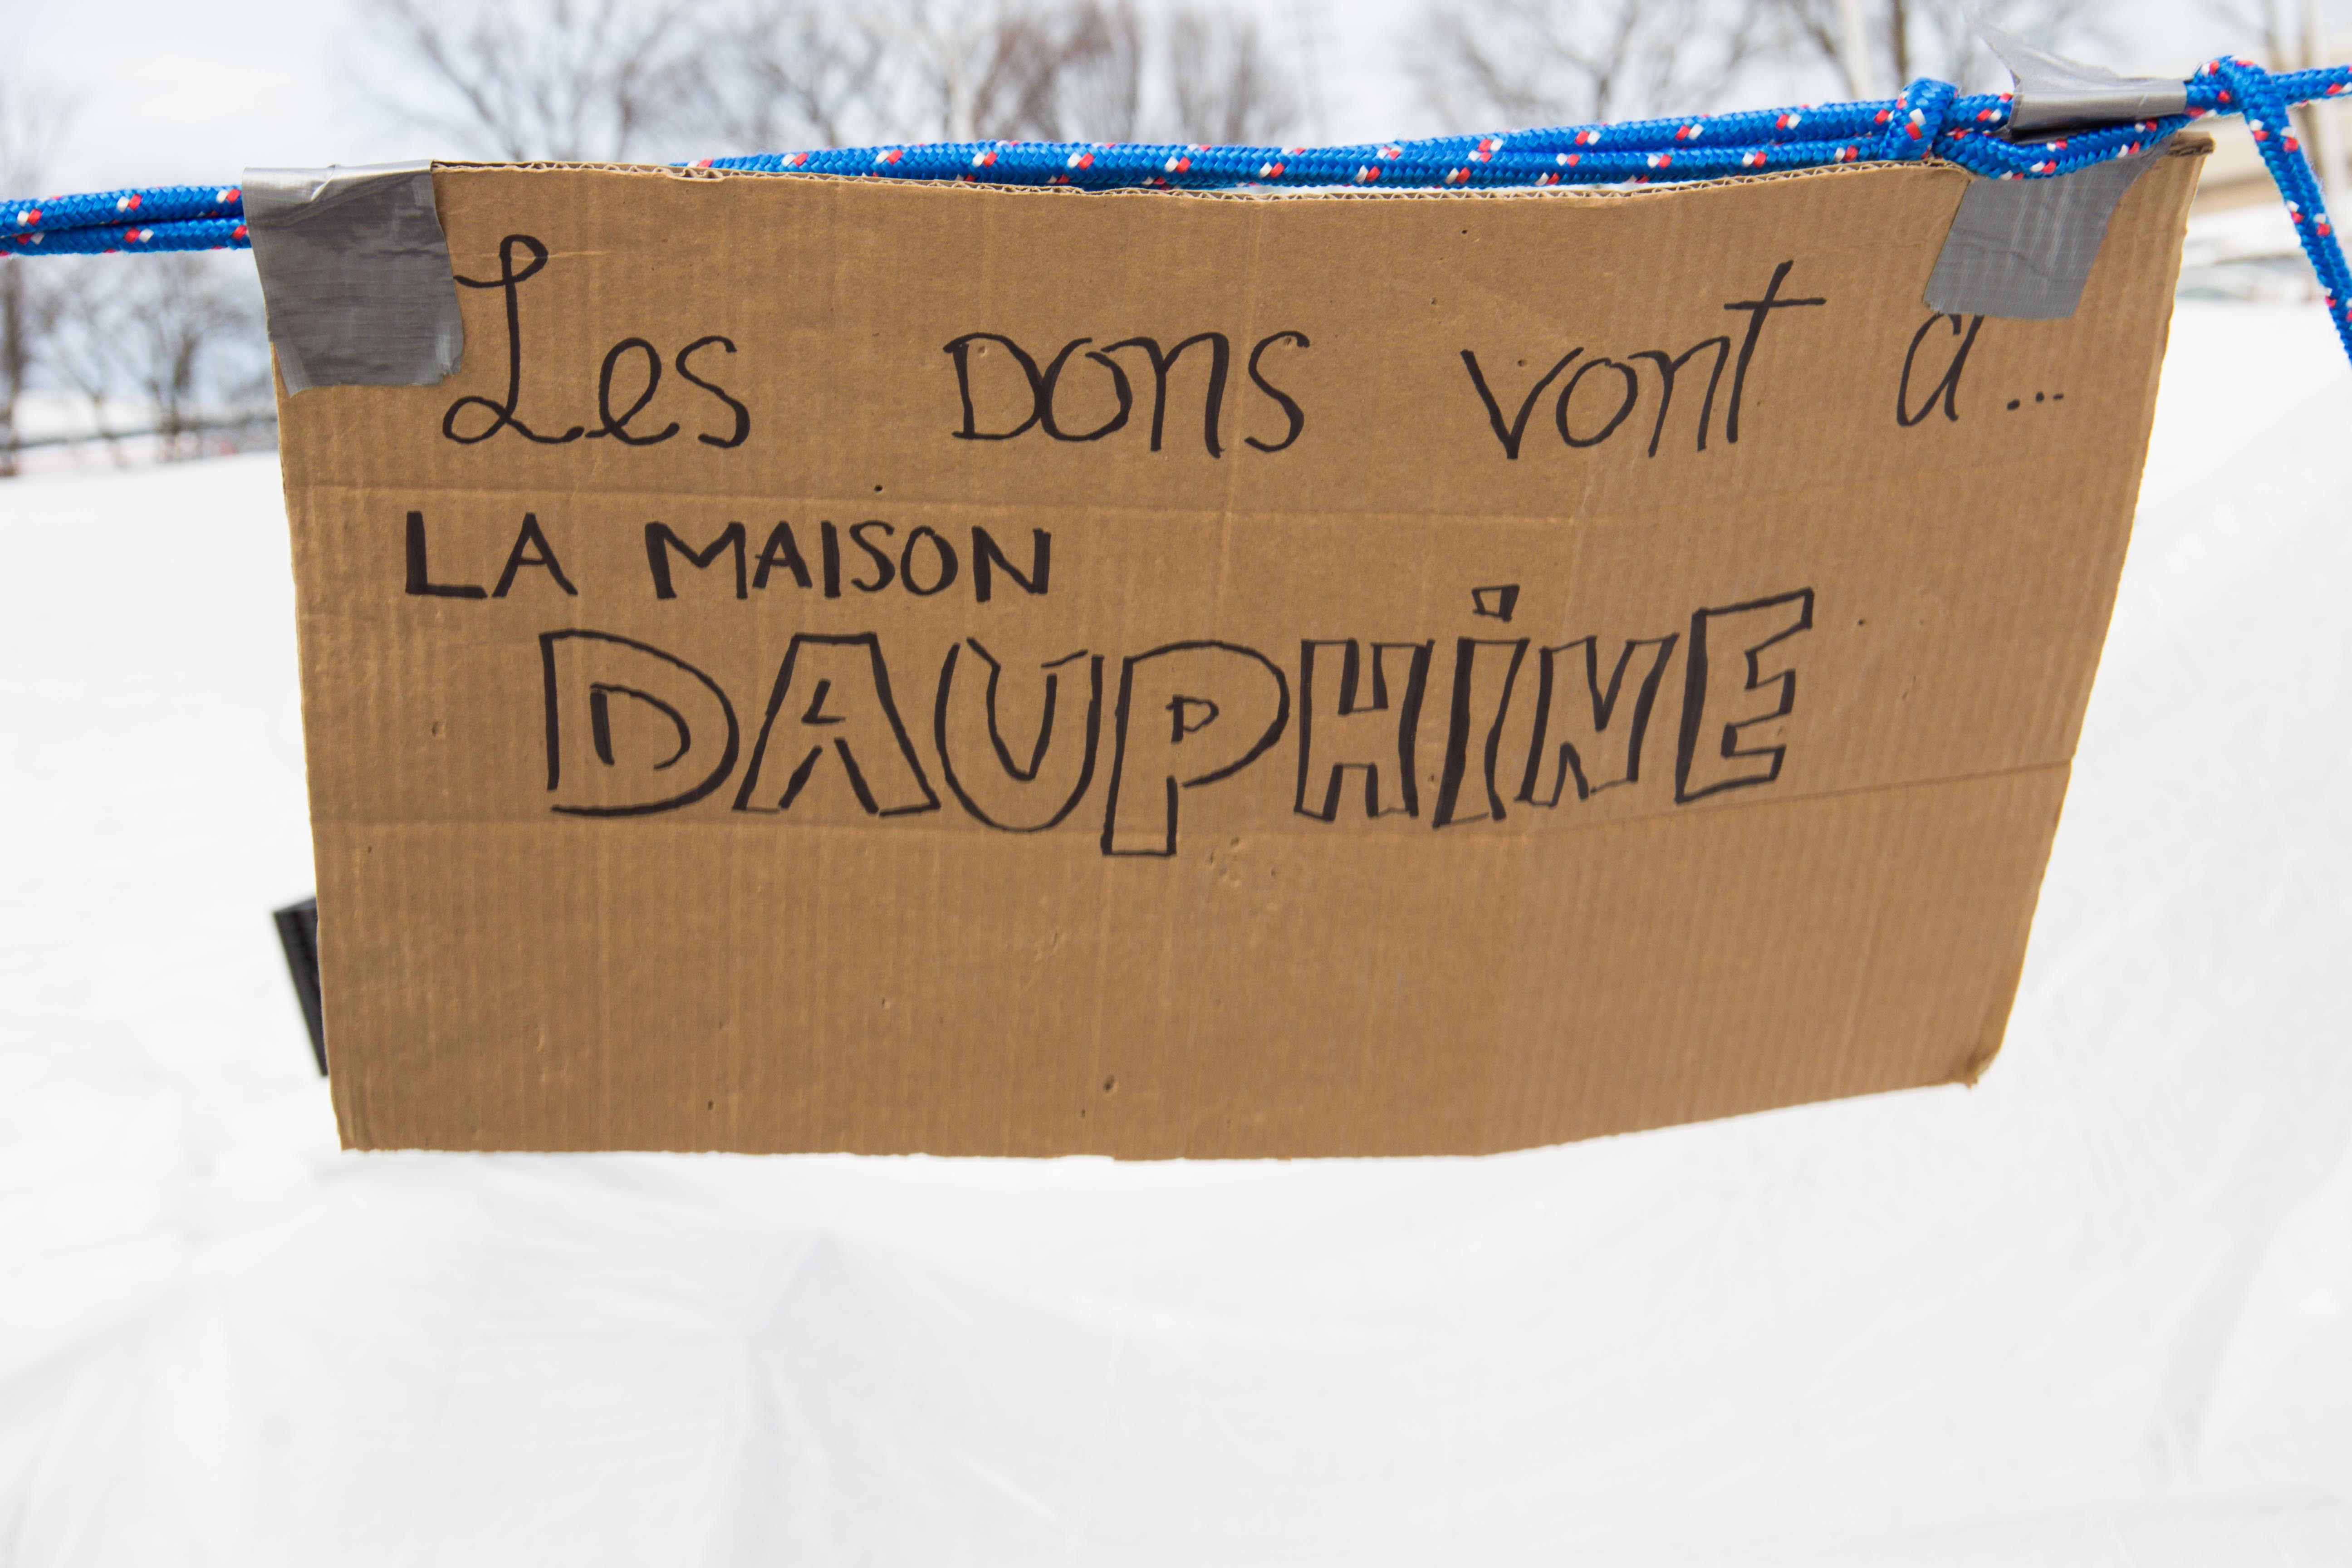 Les Dons vont à...
LA MAISON
DAUPHINE